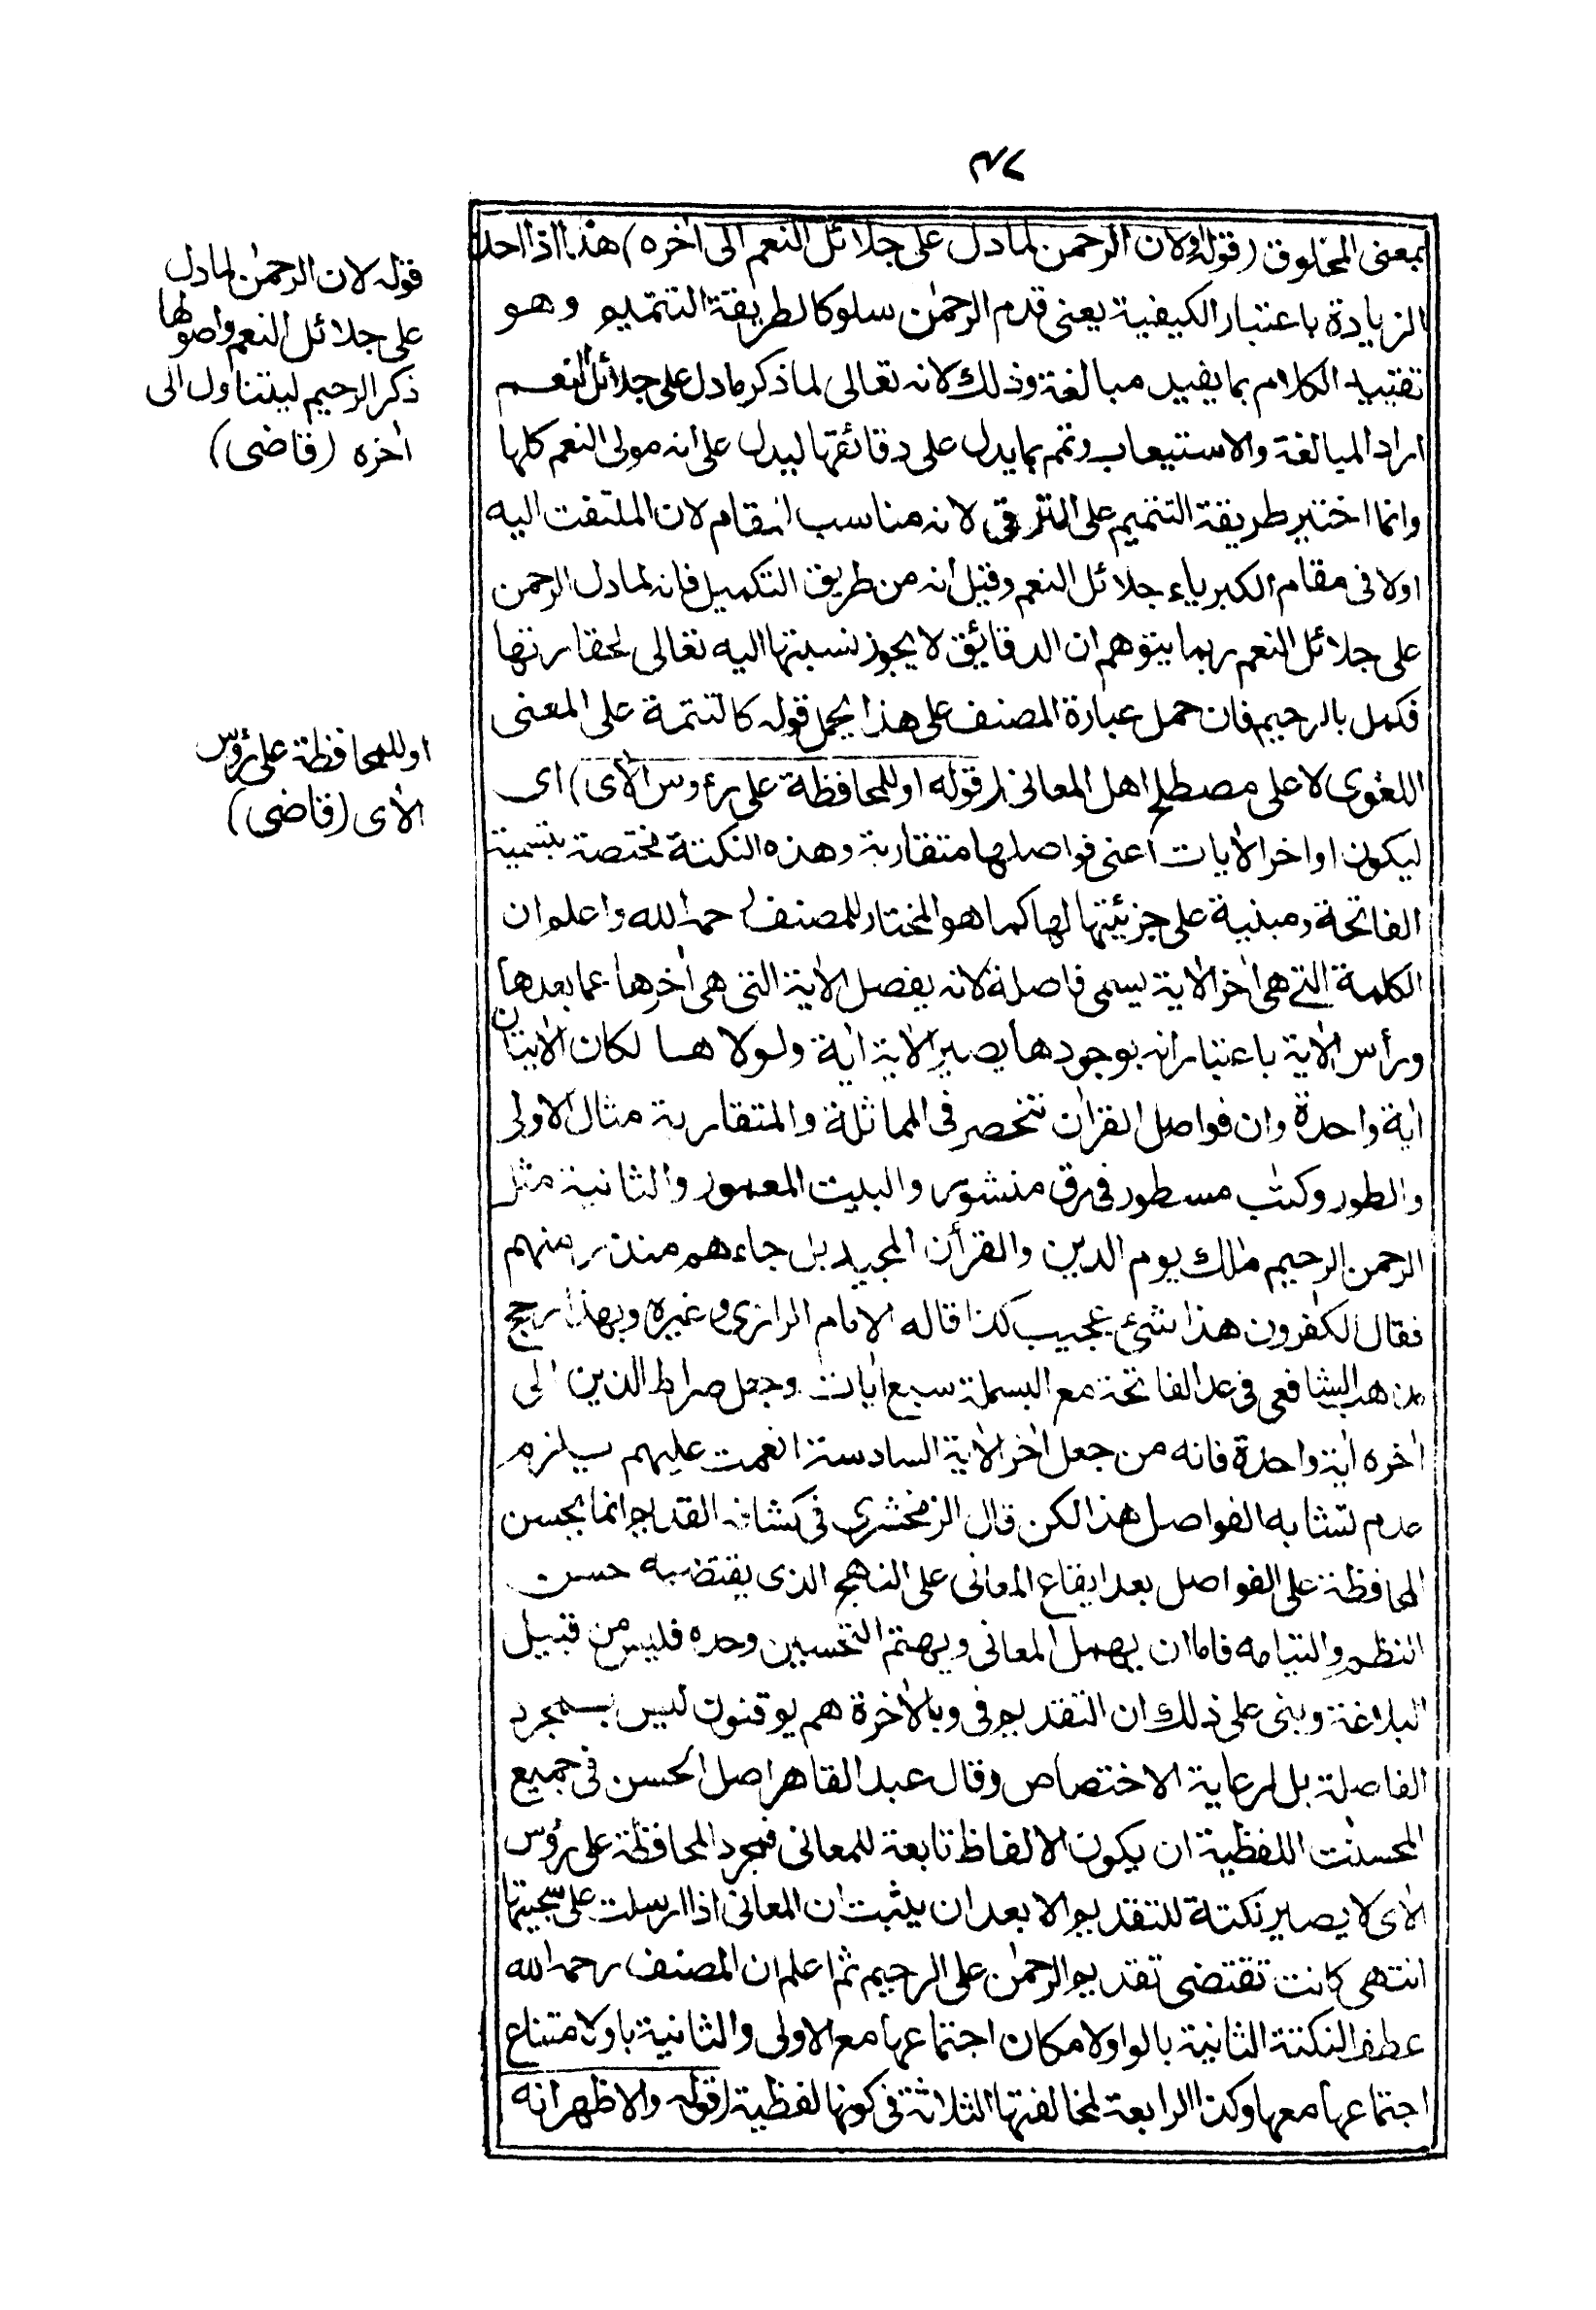 ٤٧
بمعنى المخلوق (قوله ولان الرحمن لما دل على جلائل النعم الى اٰخره) هذا اذا احد
الزيادة باعتبار الكيفية يعنى قدم الرحمٰن سلوكا لطريقة التتميم وهو
تقييد الكلام بما يفيد مبالغة وذلك لانه تعالى لما ذكر ما دل على جلائل النعم
اراد المبالغة والاستيعاب وتمم بما يدل على دقائقها ليدل على انه مولى النعم كلها
وانما اختير طريقة التتميم على الترقى لانه مناسب المقام لان الملتفت اليه
اولا فى مقام الكبرياء جلائل النعم وقيل انه من طريق التكميل فانه لما دل الرحمن
على جلائل النعم ربما يتوهم ان الدقايق لا يجوز نسبتها اليه تعالى لحقارتها
فكمل بالرحيم فان حمل عبارة المصنف على هذا يحمل قوله كالتتمة على المعنى
اللغوى لا على مصطلح اهل المعانى (قوله او للمحافظة على رءوس الاٰى) اى
ليكون اواخر الاٰيات اعنى فواصلها متقاربة وهذه النكتة مختصة بتسمية
الفاتحة ومبنية على جزئيتها لها كما هو المختار للمصنف رحمه الله واعلم ان
الكلمة التے هى اٰخر الاٰية يسمى فاصلة لانه يفصل الاٰية التى هى اٰخرها عما بعدها
ورأس الاٰية باعتبار انه بوجودها يصير الاٰية اٰية ولولا هسا لكان الاٰيتان
اٰية واحدة وان فواصل القراٰن تنحصر فى المماثلة والمتقاربة مثال الاولى
والطور وكتٰب مسطور فى رق منشور والبيت المعمور والثانية مثل
الرحمن الرحيم مٰلك يوم الدين والقراٰن المجيد بل جاءهم منذر منهم
فقال الكٰفرون هذا شىء عجيب كذا قاله الامام الرازى وغيره وبهذا رجح
مذهب الشافعى فى عد الفاتحة مع البسملة سبع اٰيات وجعل صراط الذين الى
اٰخره اٰية واحدة فانه من جعل اٰخر الاٰية السادسة انعمت عليهم يلزم
عدم تشابه الفواصل هذا لكن قال الزمخشرى فى كشافه القديم انما يحسن
المحافظة على الفواصل بعد ايقاع المعانى على النهج الذى يقتضيه حسن
النظم والتيامه فاما ان يهمل المعانى ويهتم التحسين وحده فليس من قبيل
البلاغة وبنى على ذلك ان التقديم فى وبالاٰخرة هم يوقنون ليس بمجرد
الفاصلة بل لرعاية الاختصاص وقال عبد القاهر اصل الحسن فى جميع
المحسنٰت اللفظية ان يكون الالفاظ تابعة للمعانى فمجرد المحافظة على رؤس
الاٰى لا يصير نكتة للتقديم الا بعد ان يثبت ان المعانى اذا ارسلت على سجيتها
انتهى كانت تقتضى تقديم الرحمٰن على الرحيم ثم اعلم ان المصنف رحمه الله
عطف النكتة الثانية بالواو لامكان اجتماعها مع الاولى والثانية باو لامتناع
اجتماعها معها وكذا الرابعة لمخالفتها الثلاثة فى كونها لفظية (قوله والاظهر انه
قوله لان الرحمٰن لما دل
على جلائل النعم واصولها
ذكر الرحيم ليتناول الى
اٰخره (قاضى)
او للمحافظة على رؤس
الاٰى (قاضى)